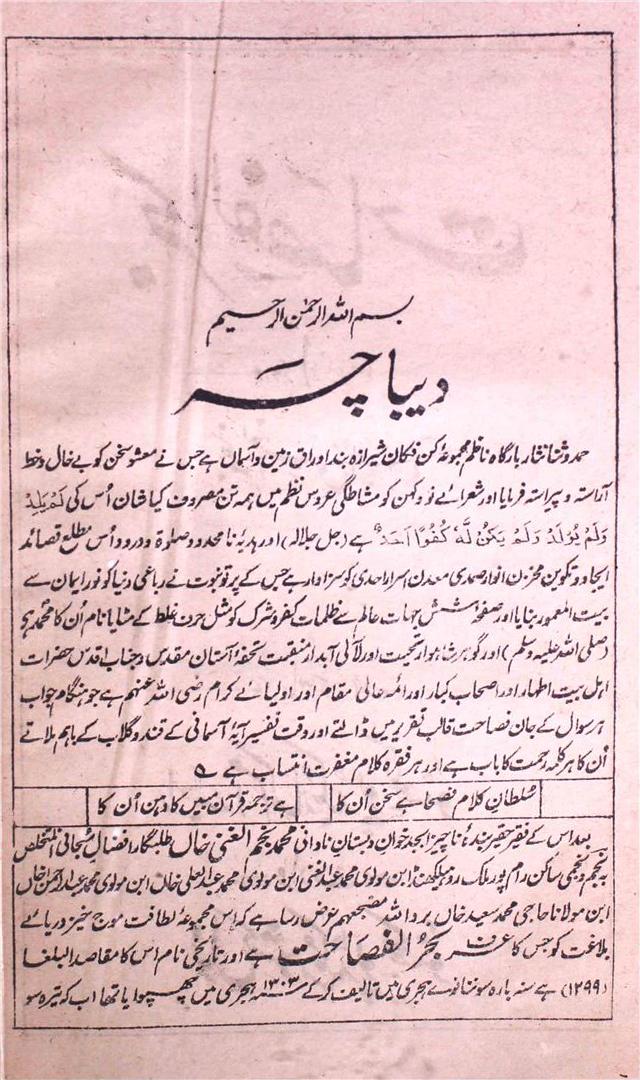 بسم اللہ الرحمن الرحیم
دیباچہ
حمد و ثنا نثار بارگاہ ناظم مجموعۂ کن فکان شیرازہ بند اوراق زمین و آسماں ہے جس نے معشوق سخن کو بے خال و خط
آراستہ و پیراستہ فرمایا اور شعرائے نو و کہن کو مشاطگی عروس نظم میں ہمہ تن مصروف کیا شان اُس کی لَمْ یَلِدْ
وَلَمْ یُوْلَدْ وَلَمْ یَکُنْ لَّهٗ کُفُوًا اَحَدٌ ہے (جل جلالہ) اور ہدیۂ نا محدود صلوٰۃ و درود اُس مطلع قصائد
ایجاد و تکوین مخزن انوار صمدی معدن اسرار احدی کو سزاوار ہے جس کے پرتو نبوت نے رباعی دنیا کو نور ایمان سے
بیت المعمور بنایا اور صفحۂ شش جہات عالم سے ظلمات کفر و شرک کو مثل حرف غلط کے مٹایا نام اُن کا محمد ہے
(صلی اللہ علیہ وسلم) اور گوہر شاہوار تحیت اور لآلی آبدار منقبت تحفۂ آستان مقدس و جناب اقدس حضرات
اہل بیت اطہار اور اصحاب کبار اور ائمہ عالی مقام اور اولیائے کرام رضی اللہ عنہم ہے جو ہنگام جواب
ہر سوال کے جان فصاحت قالب تقریر میں ڈالتے اور وقت تفسیر آیۂ آسمانی کے قند و گلاب کے باہم ملاتے
اُن کا ہر کلمہ رحمت کا باب ہے اور ہر فقرہ کلام مغفرت انتساب ہے ؎
سُلطانِ کلام نصحا ہے سخن اُن کا ہے ترجمہ قرآن مبیں کا دہن اُن کا
بعد اس کے فقیر حقیر بندۂ ناچیز ابجد خوان دبستان نادانی محمد نجم الغنی خاں طلبگار افضال سُبحانی المتخلص
بہ نجم و نجمی ساکن رام پور ملک روہیلکھنڈ ابن مولوی محمد عبد الغنی ابن مولوی محمد عبد العلی خاں ابن مولوی محمد عبد الرحمٰن خاں
ابن مولانا حاجی محمد سعید خاں برد اللہ مضجعہم عرض رسا ہے کہ اس مجموعۂ لطافت موج خیز دریائے
بلاغت کو جس کا عرف بحر الفصاحت ہے اور تاریخی نام اس کا مقاصد البلغا
(۱۲۹۹) ہے سنہ بارہ سو ننانوے ہجری میں تالیف کرکے ۱۳۰۳ ہجری میں چھپوایا تھا اب کہ تیرہ سو